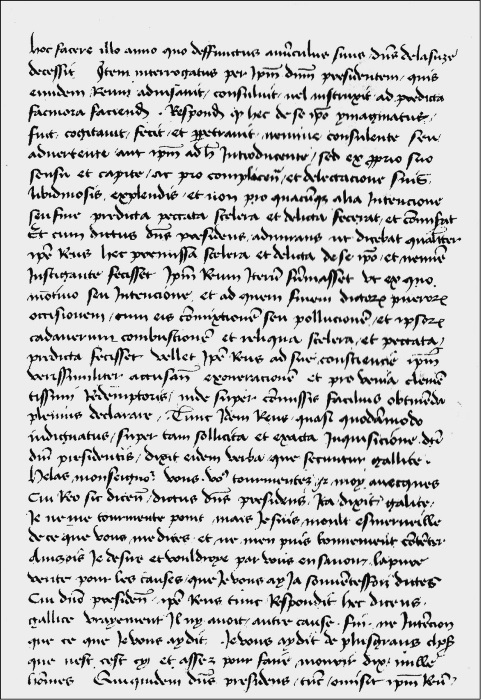 hoc facere illo anno quo deffunctus avunculus suus dns delasuze
decessit Item interrogatus per Ipm dnm presidentem quis
eundem Reum advisavit consuluit vel instruxit ad predicta
facinora faciend . Respond q hec de se ipo ymaginatus
fuit cogitavit fecit et ppetravit nemine consulente seu
advertente aut ipm ad h Introducente sed ex pprio suo
sensu et capite ac pro complacen et delectacione suis
libidinosis explendis et non pro quacunq alia Intencione
seu fine predicta peccata scelera et delicta fecerat et comisit
Et cum dictus dns presidens admirans ut dicebat qualiter
ipe Reus hec premissa scelera et delicta de se ipo et nemie
Instigante fecisset Ipm Reum Iterum sumasset ut ex quo
motivo seu Intencione et ad quem finem dictor pueror
occisionem cum eis comixtione seu pollucione et ipsor
cadaverum combustione et reliqua scelera et peccata
predicta fecisset vellet Ipe Reus ad sue consciencie ipm
verissimiliter accusan exoneracione et pro venia cleme
tissimi Redemptoris inde super comissis facilius obtineda
plenius declarare Tunc Idem Reus quasi quodamodo
indignatus super tam sollicita et exacta Inquisicione dti
dni presidentis dixit eidem verba que secuntur gallice .
helas monseigno vous vo tourmentez et moy avecques
Cui Reo sic dicen dictus dns presidens Ita dixit galice
Je ne me tourmente point mais Je suis moult esmerveille
de ce que vous me dites et ne men puis bonnement coteter
Aincois Je desire et vouldroye par vous en savoir la pure
verite pour les causes que Je vous ay Ja souventesfoi dictes
Cui dno presiden ipe Reus tunc Respondit hec dicens
gallice vrayement Il ny avoit autre cause fin ne Intencion
que ce que Je vous ay dit Je vous ay dit de plusgrans chos
que nest cest cy et assez pour faire mourir dix mille
homes Quiquidem dns presidens tuc omisit ipm Reu